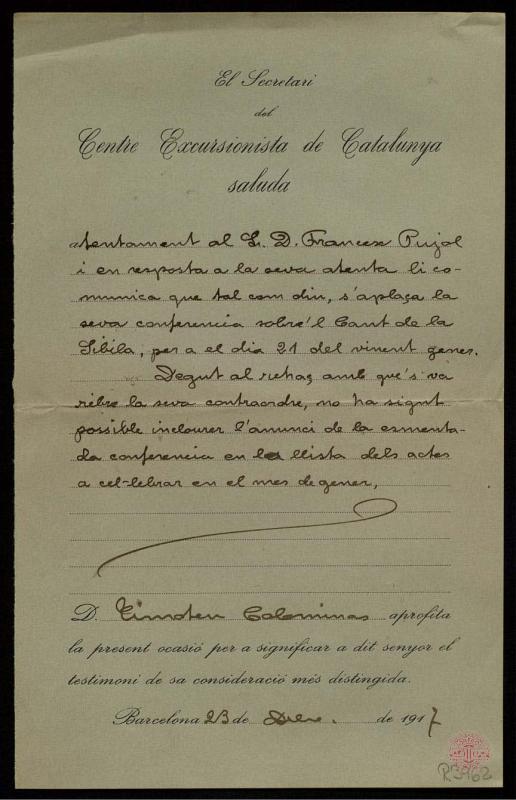 El Secretari
del
Centre Excursionista de Catalunya
saluda
atentament al Sr. D. Francesc Pujol
i en resposta a la seva atenta li co-
munica que tal com diu, s'aplaça la
seva conferencia sobre'l Cant de la
Sibila, per a el dia 21 del vinent gener.
Degut al retraç amb que's va
rébre la seva contraordre, no ha sigut
possible inclourer l'anunci de la esmenta-
da conferencia en la llista dels actes
a cel-lebrar en el mes de gener,
D. Timoteu Colominas aprofita
la present ocasió per a significar a dit senyor el
testimoni de sa consideració més distingida.
Barcelona 23 de Dbre. de 1917
R.3962